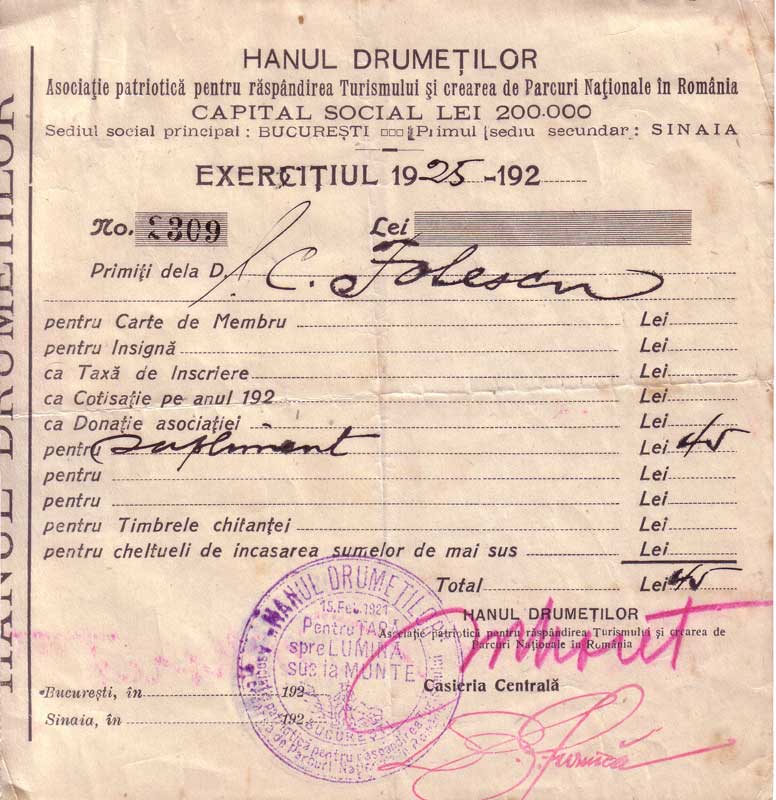 HANUL DRUMEȚILOR
HANUL DRUMEȚILOR
Asociație patriotică pentru răspândirea Turismului și crearea de Parcuri Naționale în România
CAPITAL SOCIAL LEI 200.000
Sediul social principal : BUCUREȘTI Primul sediu secundar : SINAIA
EXERCIȚIUL 1925-192
No. 2309 Lei
Primiți dela D. C.
pentru Carte de Membru Lei
pentru Insignă Lei
ca Taxă de Inscriere Lei
ca Cotisație pe anul 192 Lei
ca Donație asociației Lei
pentru supliment Lei 45
pentru Lei
pentru Lei
pentru Timbrele chitanței Lei
pentru cheltueli de incasarea sumelor de mai sus Lei
Total Lei 45
HANUL DRUMEȚILOR
Asociație patriotică pentru răspândirea Turismului și crearea de
Parcuri Naționale în România
Casieria Centrală
București, în 192
Sinaia, în 192
HANUL DRUMEȚILOR
15. Feb. 1921
Pentru ȚARĂ
spre LUMINĂ
sus la MUNTE
BUCUREȘTI